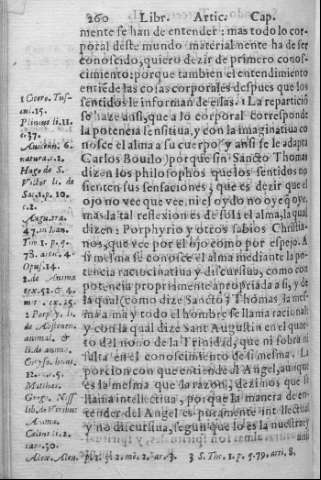 260 Libr. Artic. Cap.
mente se han de entender: mas todo lo cor
poral deste mundo materialmente ha de ser
conoscido, quiero dezir de primero conos-
cimiento: porque tambien el entendimiento
entiẽde las cosas corporales despues que los
sentidos le informan de ellas. La reparticiõ
se haze ansi, que a lo corporal corresponde
la potencia sensitiua, y con la imaginatiua co
nosce el alma a su cuerpo (y ansi se le adapta
Carlos Bouilo) porque sin Sancto Thomas
dizen los philosophos que los sentidos no
sienten sus sensaciones, que es dezir que el
ojo no vee que vee, ni el oydo no oye q̃ oye,
mas la tal reflexion es de sola el alma, la qual
dizen Porphyrio y otros sabios Christia-
nos, que vee por el ojo como por espejo. A
si mesma se conosce el alma mediante la po-
tencia raciocinatiua y discursiua, como con
potencia propriamente apropriada a si, y de
la qual (como dize Sancto Thomas) la mes-
ma alma y todo el hombre se llama racional
y con la qual dize Sant Augustin en el quar-
to del nono de la Trinidad, que ni sobra ni
falta en el conoscimiento de si mesma. La
porcion con que entiende al Angel, aunque
es la mesma que la razon, dezimos que se
llama intellectiua, porque la manera de en-
tender del Angel es puramente intellectual
y no discursiua, segun que lo es la nuestra
1 Cicero. Tus-
cu. 15.
Plinius li. 11.
c. 37.
Auicenn. 6.
natura. c. 2.
Hugo de S.
Victor li. de
Sac. 1. p. 10.
c. 2.
Augu. tra.
47. in Ioan.
Tho. 1. p. q.
78. arti. 4.
Opus. 14.
2. de Anima
tex. 52. & 4.
met. ex. 25.
2 Porphy. li.
de Abstinen.
animal. &
li. de animo.
22.
Mathæi.
Grego. Niss
lib. de Viribus
Animæ.
cap. 30.
Alex. Alen. p. 2. q. 2. mẽ. 2. ar. 3. 3 S. Tho. 1. p. q. 79. arti. 8.